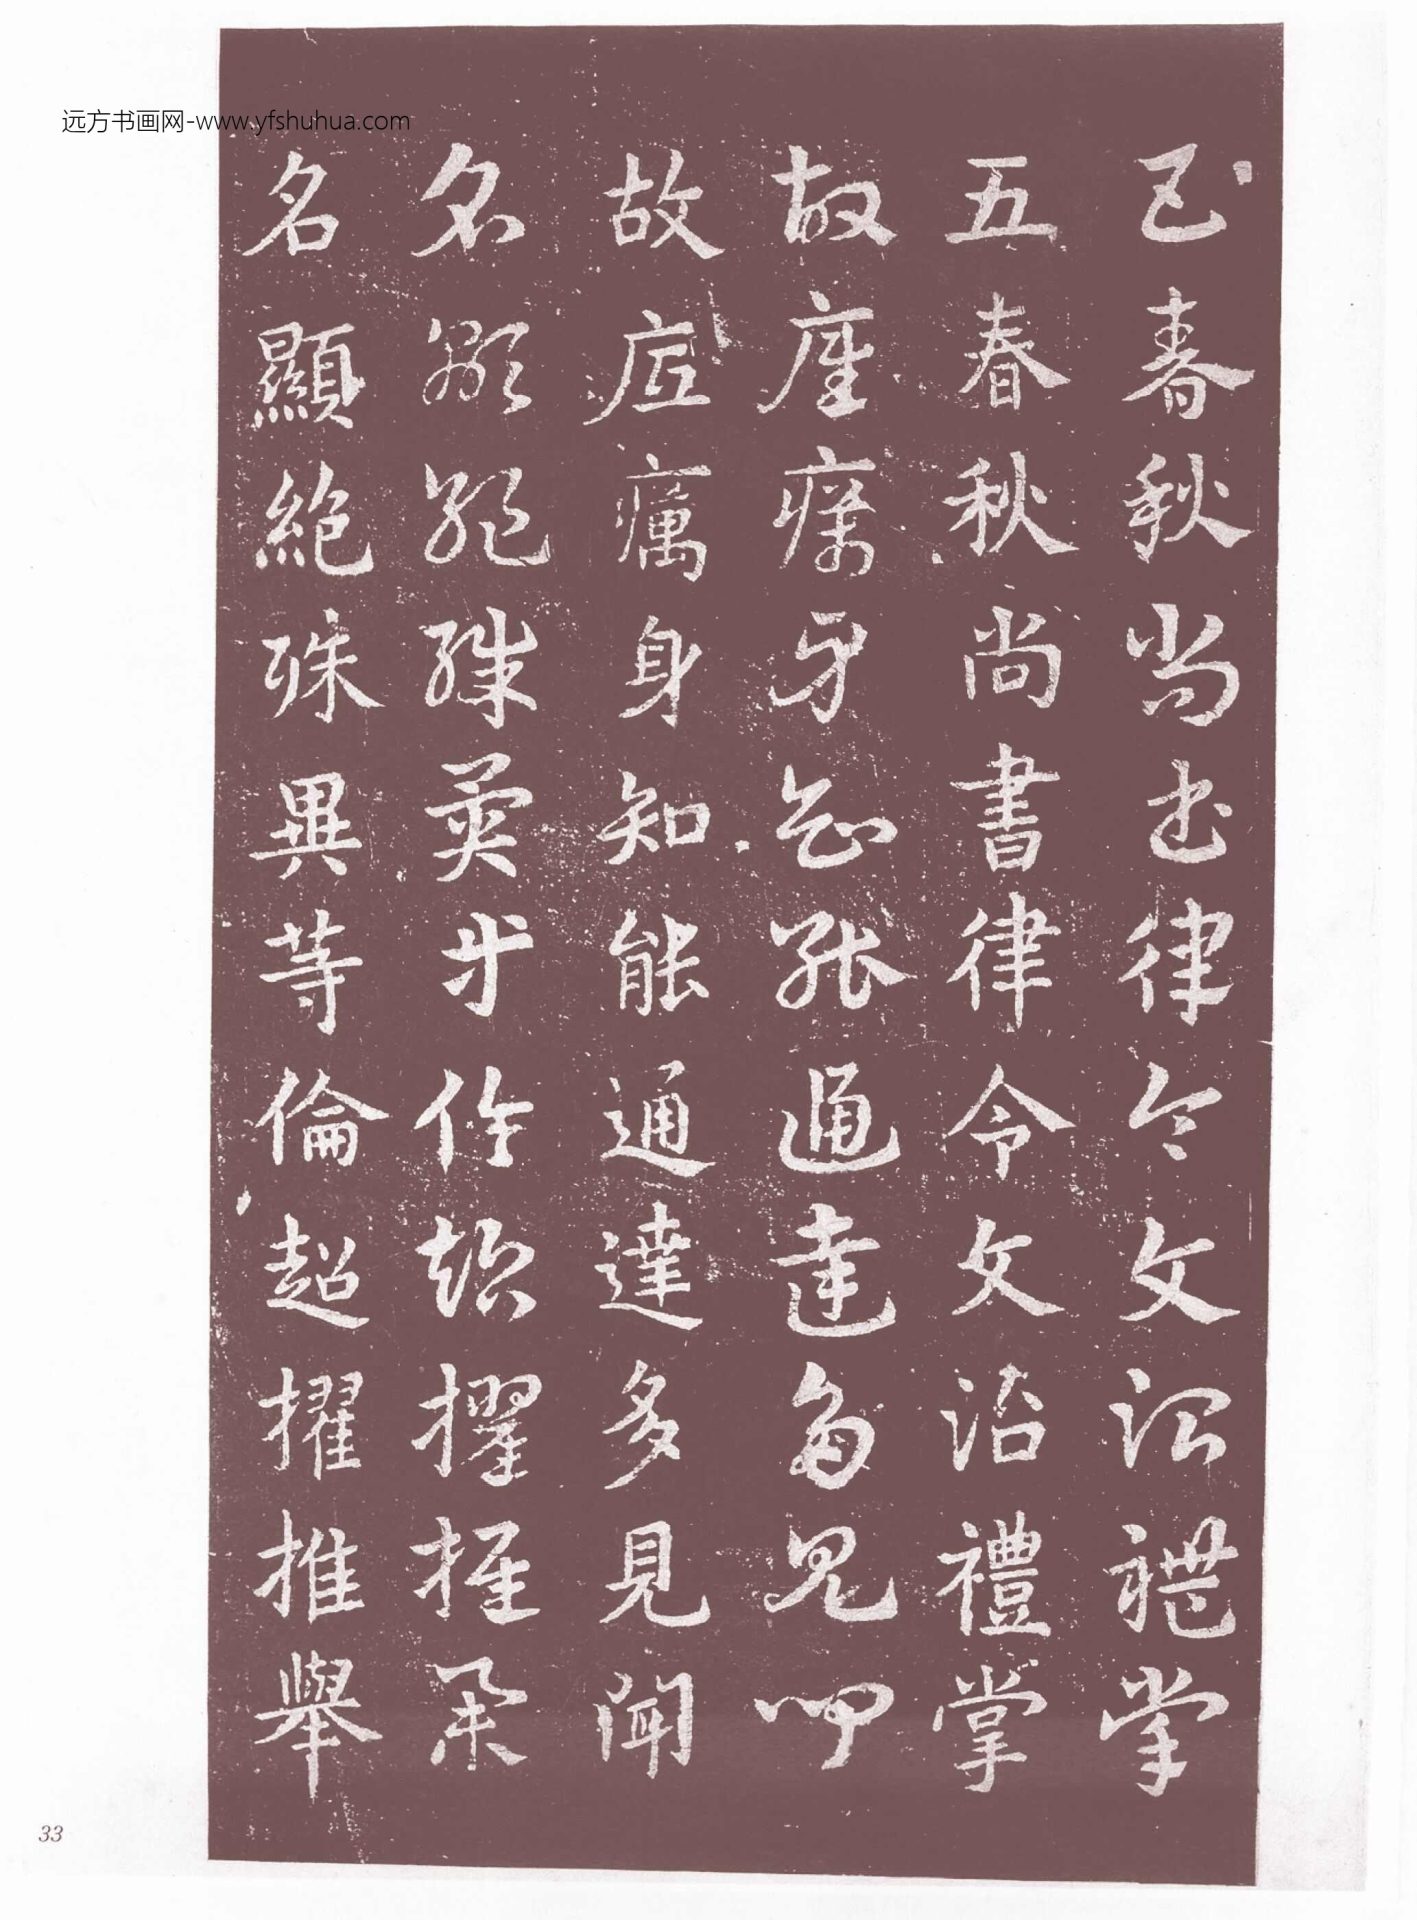 远方书画网-www.yfshuhua.com
五春秋尚書律令文治禮掌
五春秋尚書律令文治禮掌
故底癘身知能通達多見聞
故底癘身知能通達多見聞
名顯絕殊異等倫超擢推舉
名顯絕殊異等倫超擢推舉
33